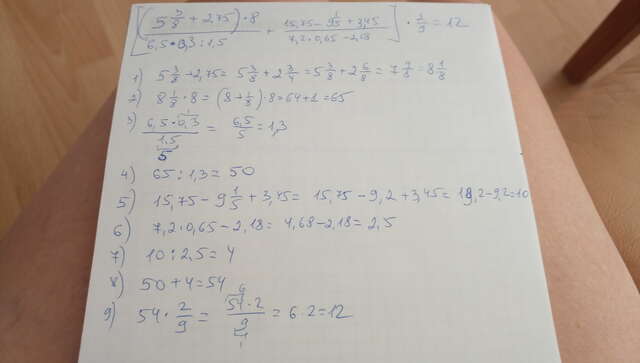 [(5 3/8 + 2,75) · 8 / 6,5 · 0,3 : 1,5 + 15,75 - 9 1/5 + 3,45 / 7,2 · 0,65 - 2,18] · 2/9 = 12
1) 5 3/8 + 2,75 = 5 3/8 + 2 3/4 = 5 3/8 + 2 6/8 = 7 9/8 = 8 1/8
2) 8 1/8 · 8 = (8 + 1/8) · 8 = 64 + 1 = 65
3) 6,5 · 0,3 / 1,5 = 6,5 / 5 = 1,3
5
4) 65 : 1,3 = 50
5) 15,75 - 9 1/5 + 3,45 = 15,75 - 9,2 + 3,45 = 19,2 - 9,2 = 10
6) 7,2 · 0,65 - 2,18 = 4,68 - 2,18 = 2,5
7) 10 : 2,5 = 4
8) 50 + 4 = 54
9) 54 · 2/9 = 54 · 2 / 9 = 6 · 2 = 12